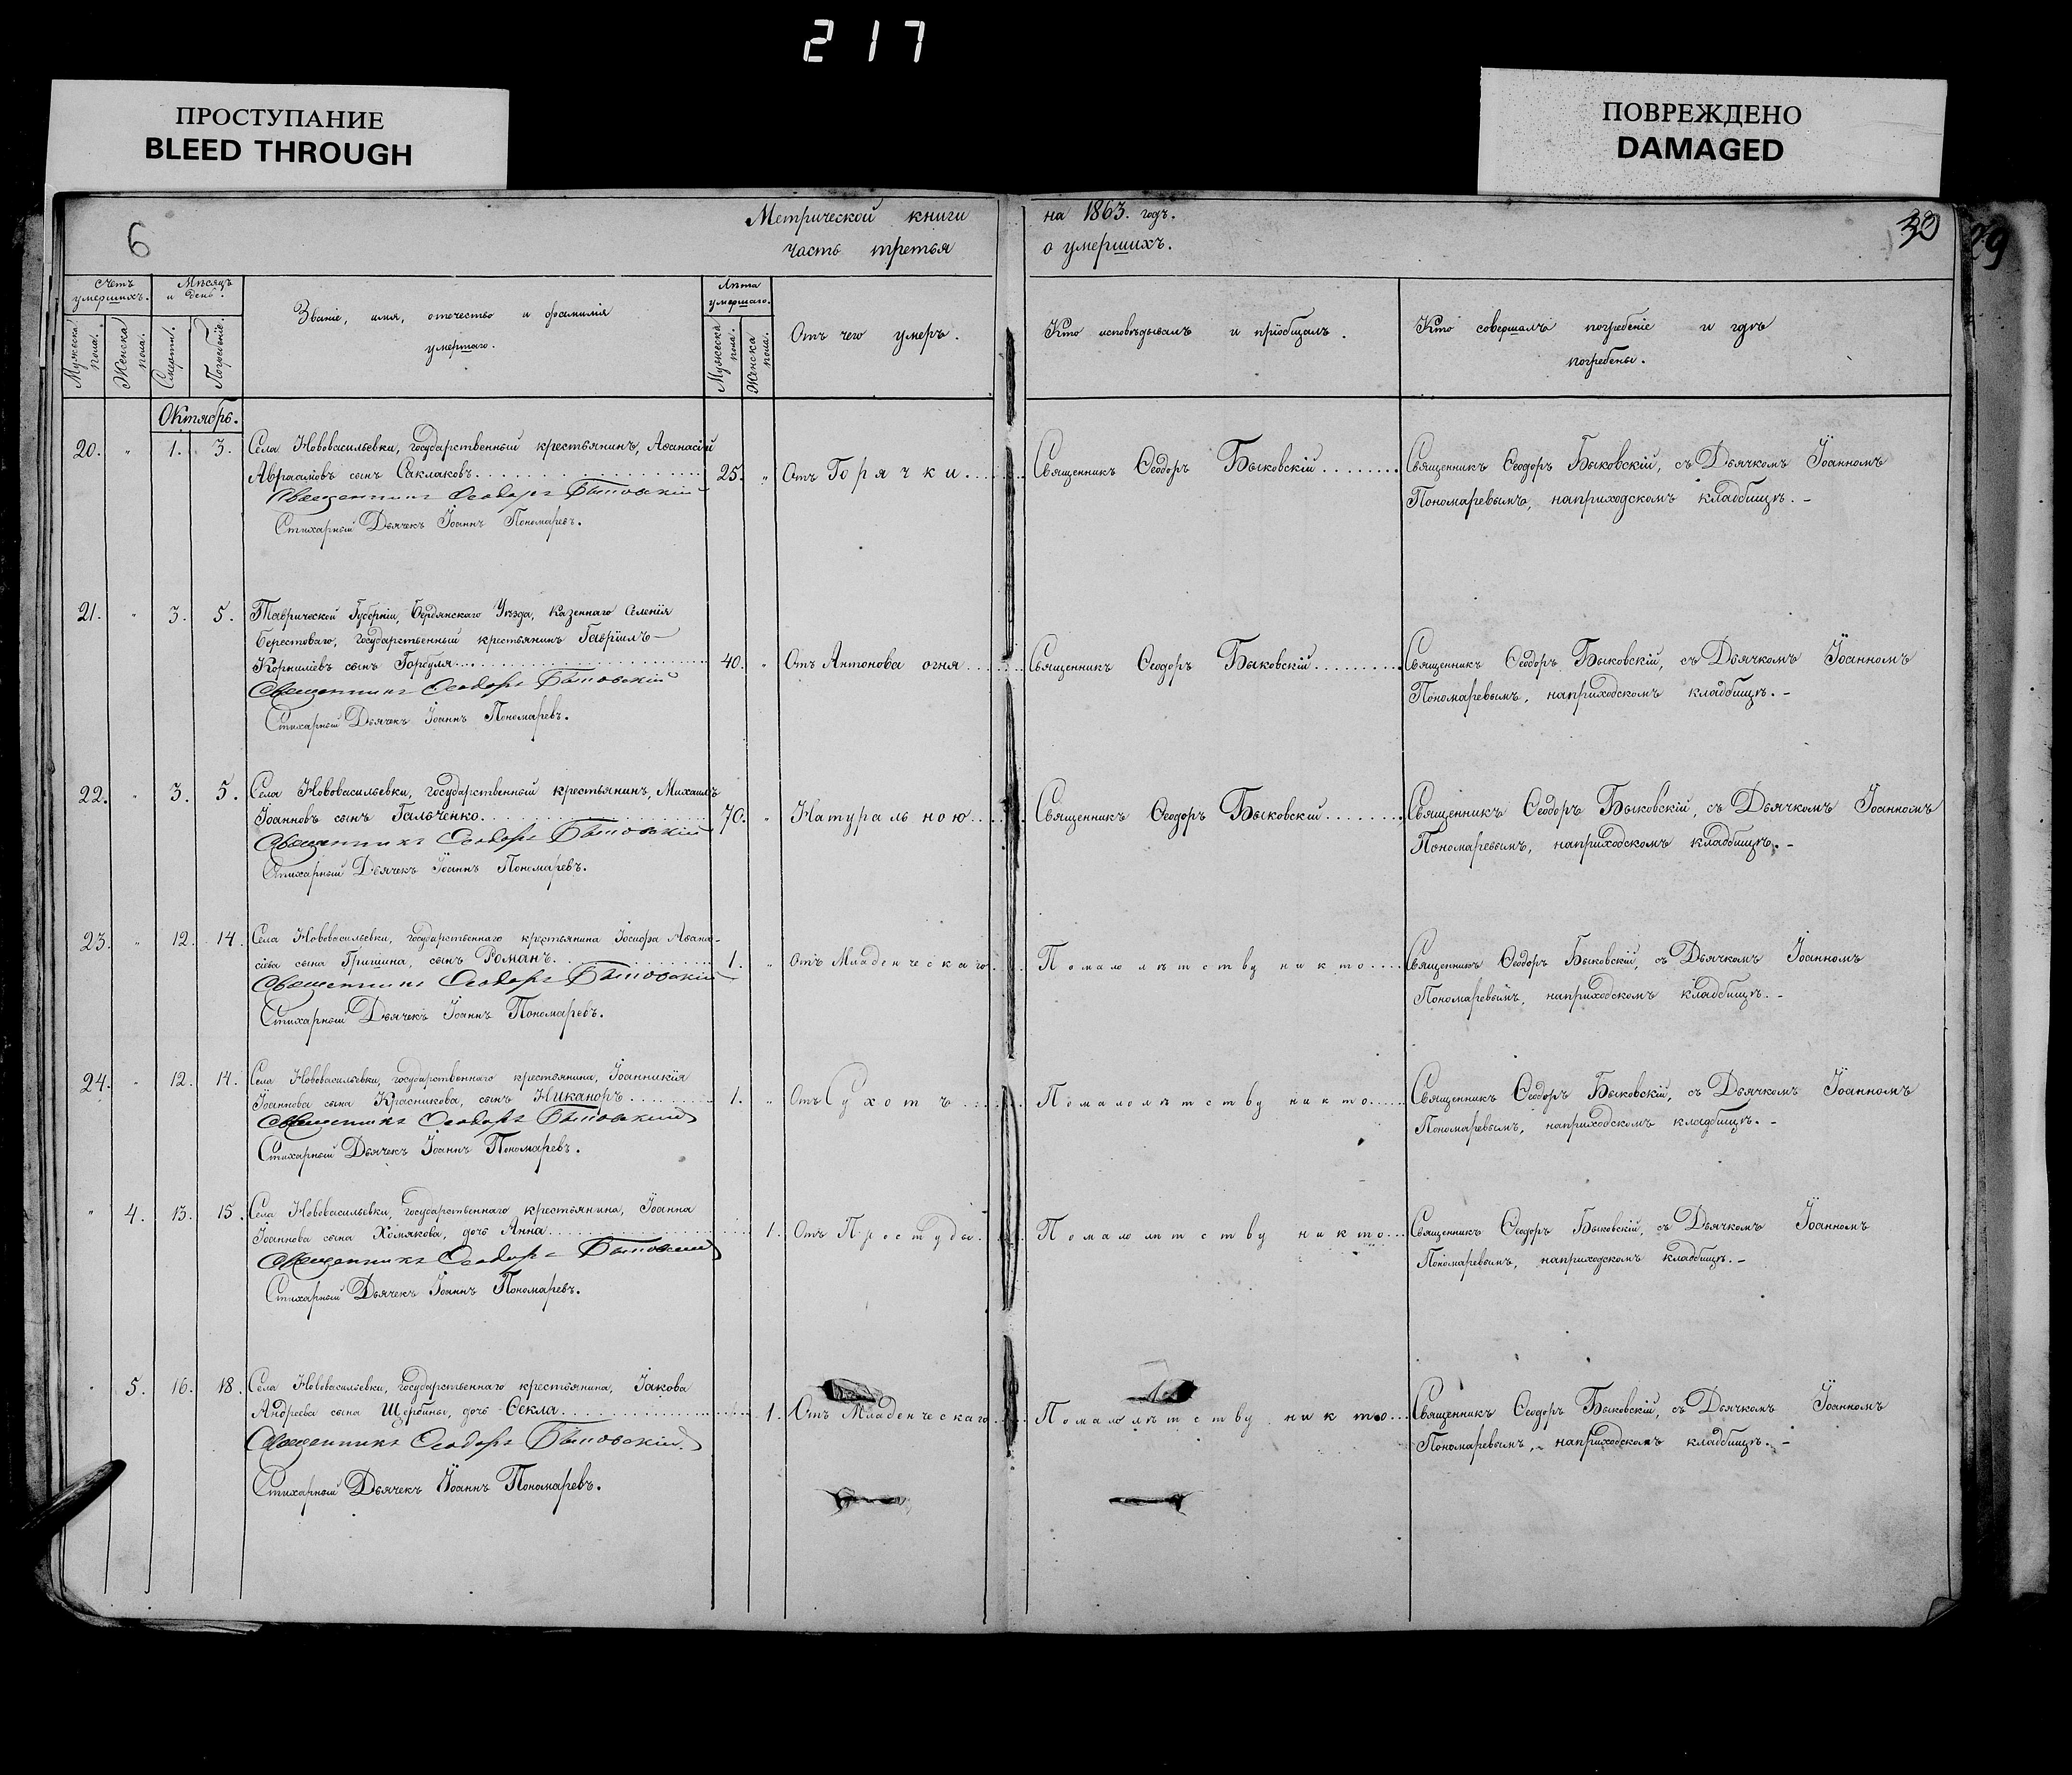 217
ПРОСТУПАНИЕ
BLEED THROUGH
ПОВРЕЖДЕНО
DAMAGED
6
Метрической книги
на 1863. годъ.
часть третья
о умершихъ.
29
Счетъ умершихъ.
Мѣсяцъ и день.
Мужеска пола.
Женска пола.
Смерти.
Погребеніе.
Званіе, имя, отечество и фамилія
умершаго.
Лѣта умершаго.
Мужеска пола.
Женска пола.
Отъ чего умеръ.
Кто исповѣдывалъ и пріобщалъ.
Кто совершалъ погребеніе и гдѣ
погребены.
Октябрь.
20. „ 1. 3. Села Нововасильевки, государственный крестьянинъ, Аѳанасій
Аврамовъ сынъ Саклаковъ. 25. „ Отъ Горячки. Священникъ Ѳеодоръ Быковскій. Священникъ Ѳеодоръ Быковскій, съ Дьячкомъ Іоанномъ
Священникъ Ѳеодоръ Быковскій
Пономаревымъ, наприходскомъ кладбищѣ. –
Стихарный Дьячекъ Іоаннъ Пономаревъ.
21. „ 3. 5. Таврической Губерніи, Бердянскаго Уѣзда, Казеннаго Селенія
Берестоваго, государственный крестьянинъ Гавріилъ
Корниліевъ сынъ Горбуля. 40. „ Отъ Антонова огня. Священникъ Ѳеодоръ Быковскій. Священникъ Ѳеодоръ Быковскій, съ Дьячкомъ Іоанномъ
Священникъ Ѳеодоръ Быковскій
Пономаревымъ, наприходскомъ кладбищѣ. –
Стихарный Дьячекъ Іоаннъ Пономаревъ.
22. „ 3. 5. Села Нововасильевки, государственный крестьянинъ, Михаилъ
Іоанновъ сынъ Гальченко. 70. „ Натуральною. Священникъ Ѳеодоръ Быковскій. Священникъ Ѳеодоръ Быковскій, съ Дьячкомъ Іоанномъ
Священникъ Ѳеодоръ Быковскій
Пономаревымъ, наприходскомъ кладбищѣ. –
Стихарный Дьячекъ Іоаннъ Пономаревъ.
23. „ 12. 14. Села Нововасильевки, государственнаго крестьянина Іосифа Аѳана-
сіева сына Гришина, сынъ Романъ. 1. „ Отъ Младенческаго. Помалолѣтству никто. Священникъ Ѳеодоръ Быковскій, съ Дьячкомъ Іоанномъ
Священникъ Ѳеодоръ Быковскій
Пономаревымъ, наприходскомъ кладбищѣ. –
Стихарный Дьячекъ Іоаннъ Пономаревъ.
24. „ 12. 14. Села Нововасильевки, государственнаго крестьянина, Іоанникія
Іоаннова сына Красникова, сынъ Никаноръ. 1. „ Отъ Сухотъ. Помалолѣтству никто. Священникъ Ѳеодоръ Быковскій, съ Дьячкомъ Іоанномъ
Священникъ Ѳеодоръ Быковскій
Пономаревымъ, наприходскомъ кладбищѣ. –
Стихарный Дьячекъ Іоаннъ Пономаревъ.
„ 4. 13. 15. Села Нововасильевки, государственнаго крестьянина, Іоанна
Іоаннова сына Хомякова, дочь Анна. 1. Отъ Простуды. Помалолѣтству никто. Священникъ Ѳеодоръ Быковскій, съ Дьячкомъ Іоанномъ
Священникъ Ѳеодоръ Быковскій
Пономаревымъ, наприходскомъ кладбищѣ. –
Стихарный Дьячекъ Іоаннъ Пономаревъ.
„ 5. 16. 18. Села Нововасильевки, государственнаго крестьянина, Іакова
Андреева сына Щербины, дочь Ѳекла. 1. Отъ Младенческаго. Помалолѣтству никто. Священникъ Ѳеодоръ Быковскій, съ Дьячкомъ Іоанномъ
Священникъ Ѳеодоръ Быковскій
Пономаревымъ, наприходскомъ кладбищѣ. –
Стихарный Дьячекъ Іоаннъ Пономаревъ.